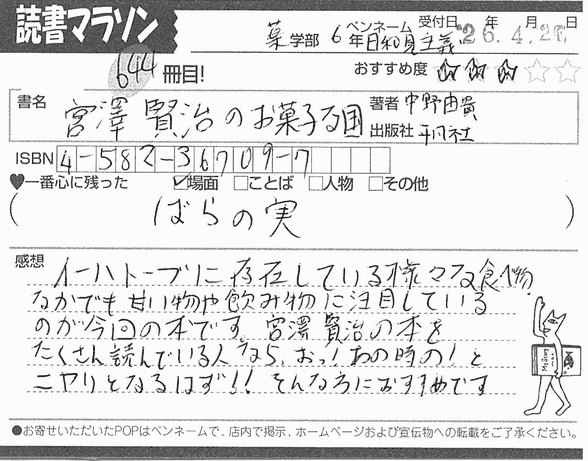 読書マラソン
薬学部 6年 ペンネーム 日和見主義 受付日 '26年 4月 21日
644 冊目!
おすすめ度 ★★★☆☆
書名 宮澤賢治のお菓子な国
著者 中野由貴
出版社 平凡社
ISBN 4-582-36709-7
♥一番心に残った ☑場面 □ことば □人物 □その他
( ばらの実 )
感想 イーハトーブに存在している様々な食べ物。
なかでも甘い物や飲み物に注目している
のが今回の本です。宮澤賢治の本を
たくさん読んでいる人なら、おっ!あの時の!と
ニヤリとなるはず!! そんな方におすすめです
●お寄せいただいたPOPはペンネームで、店内で掲示、ホームページおよび宣伝物への転載をご了承ください。